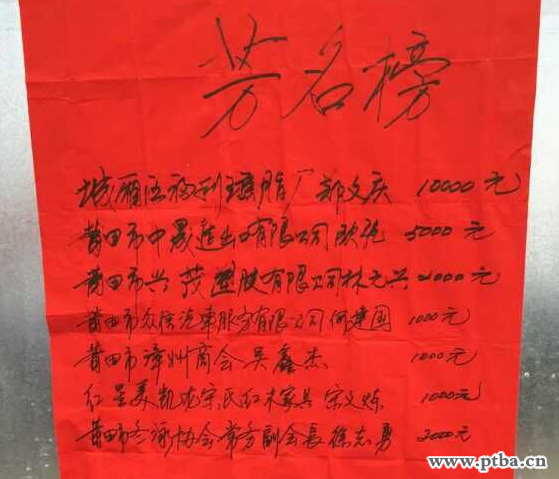 芳名榜
城厢区福利琼脂厂 郑文庆 10000元
莆田市中晟进出口有限公司 欧 5000元
莆田市兴茂塑胶有限公司 林元兴 2000元
莆田市众信汽車服务有限公司 何建国 1000元
莆田市漳州商会 吴鑫杰 1000元
红星美凯龙宗氏红木家具 宗文炼 1000元
莆田市冬泳协会常务副会長 徐志勇 2000元
www.ptba.cn